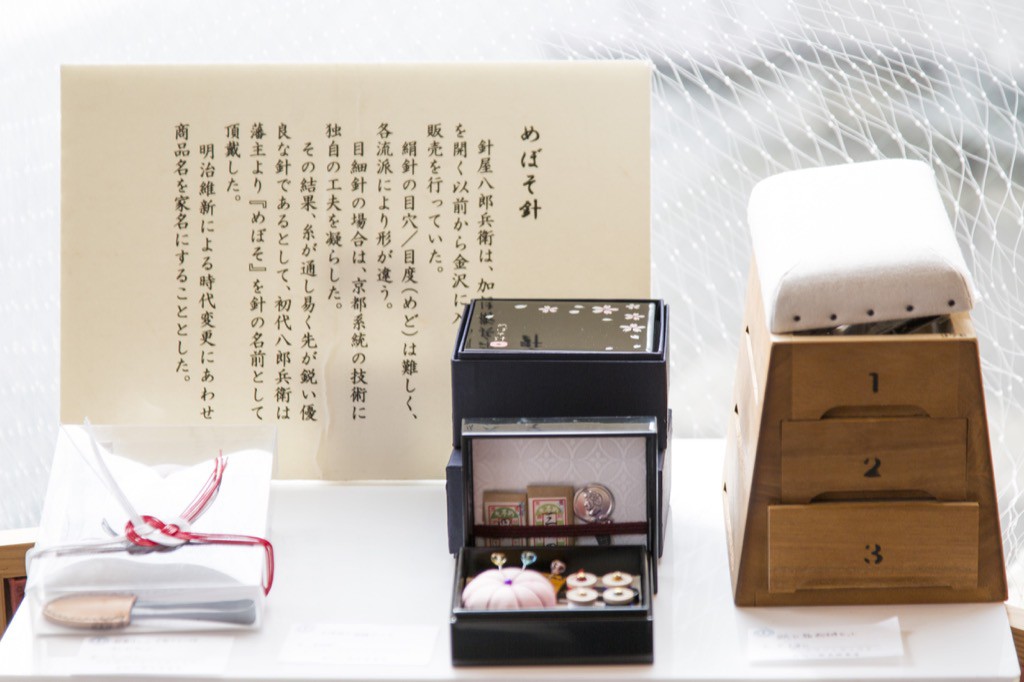 めぼそ針
針屋八郎兵衛は、加
を開く以前から金沢に
販売を行っていた。
絹針の目穴／目度（めど）は難しく、
各流派により形が違う。
目細針の場合は、京都系統の技術に
独自の工夫を凝らした。
その結果、糸が通し易く先が鋭い優
良な針であるとして、初代八郎兵衛は
藩主より『めぼそ』を針の名前として
頂戴した。
明治維新による時代変更にあわせ
商品名を家名にすることとした。
1
2
3